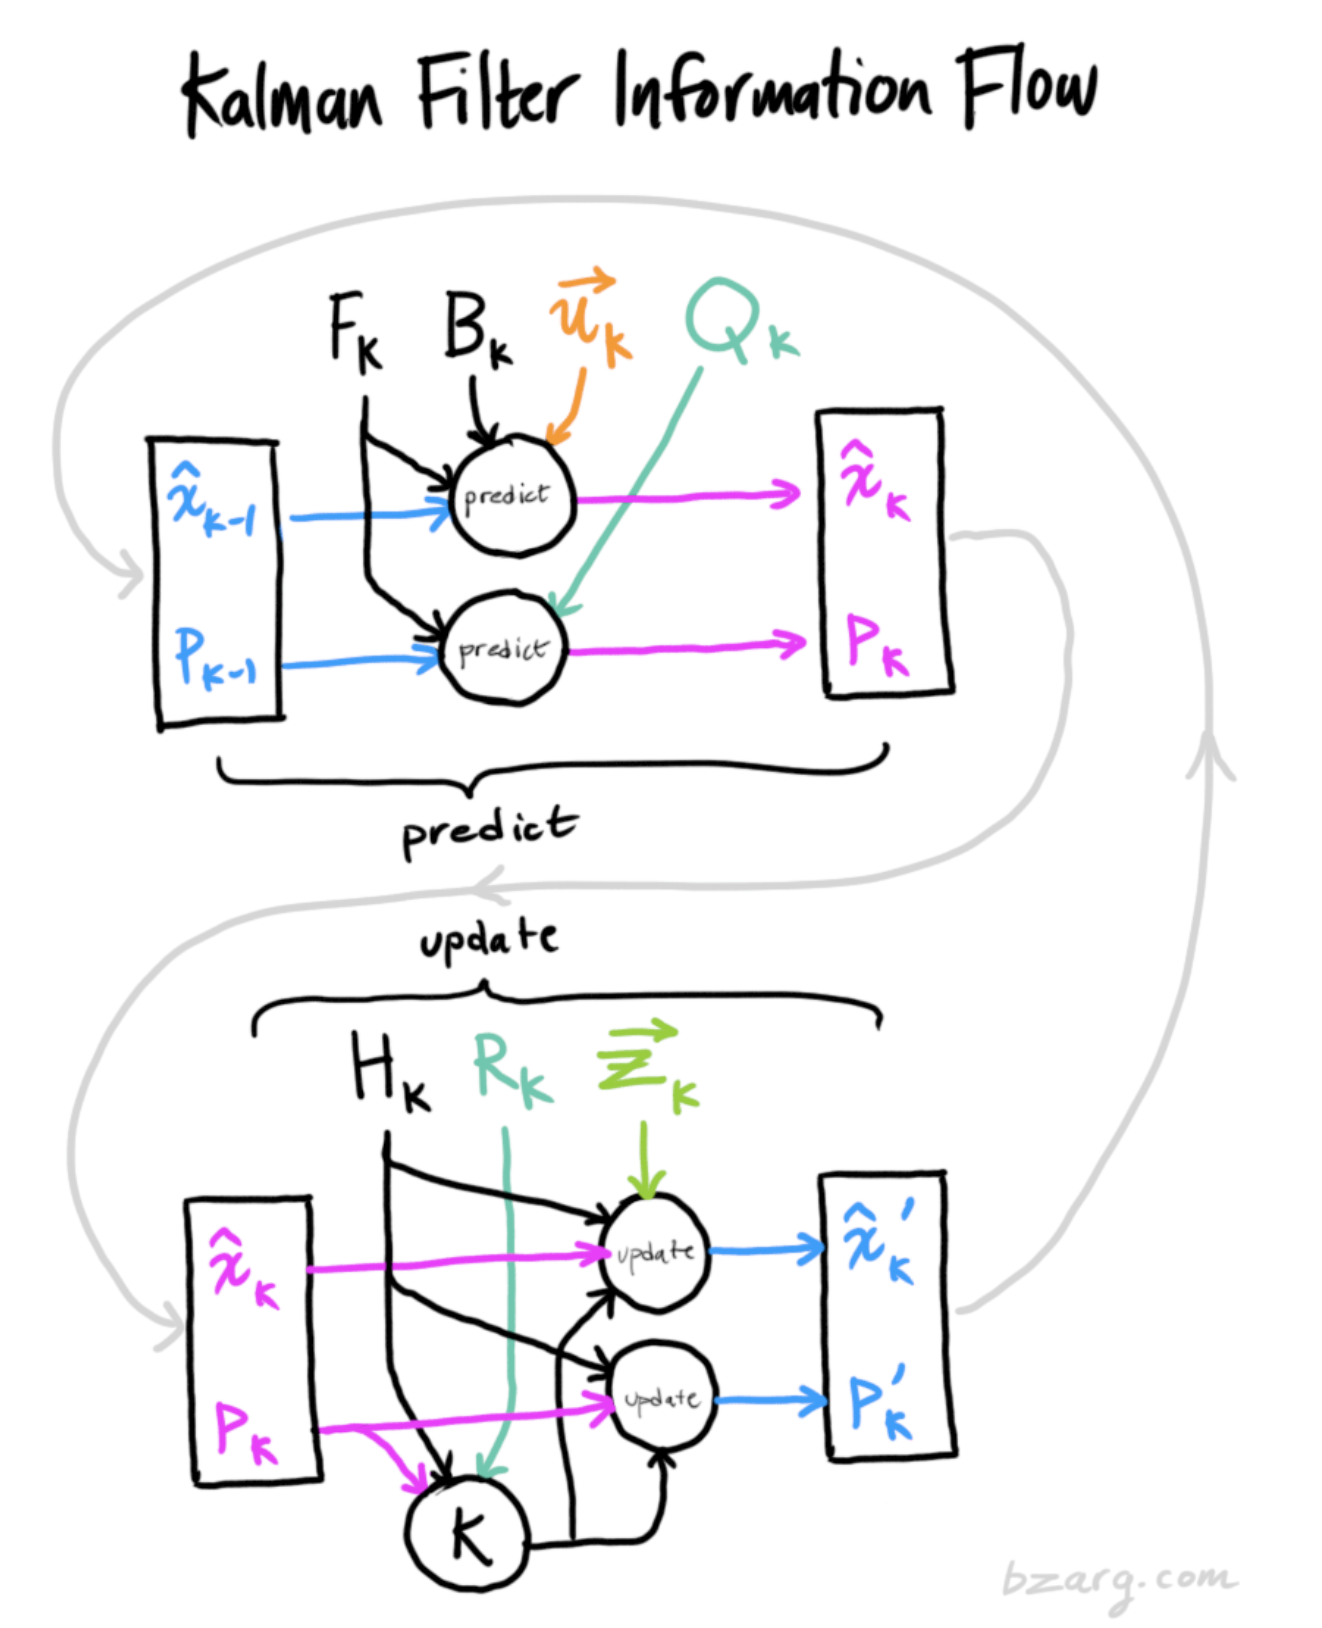 Kalman Filter Information Flow
F_k B_k u⃗_k Q_k
x̂_k-1 predict x̂_k
P_k-1 predict P_k
predict
update
H_k R_k z⃗_k
x̂_k update x̂_k'
P_k update P_k'
K
bzarg.com